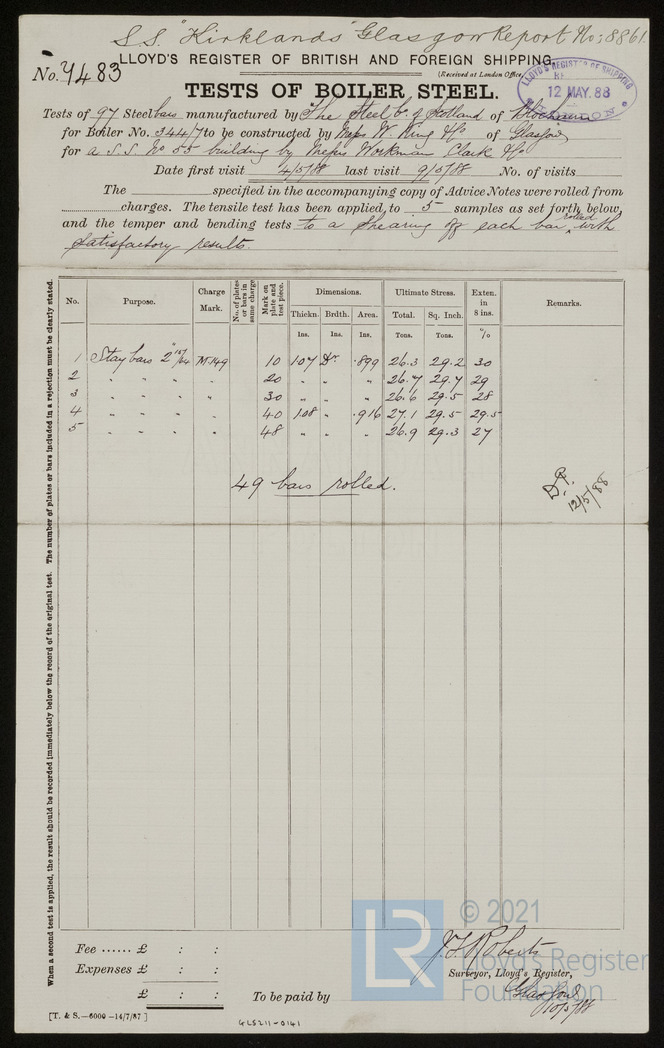 S.S. "Kirklands" Glasgow Report No: 8861.
No. 7483
LLOYD'S REGISTER OF BRITISH AND FOREIGN SHIPPING.
(Received at London Office
LLOYD'S REGISTER OF SHIPPING
12 MAY. 88
LONDON
TESTS OF BOILER STEEL.
Tests of 97 Steel bars manufactured by The Steel Co of Scotland of Blochairn
for Boiler No. 3447 to be constructed by Messrs W. King & Co of Glasgow
for a S.S. No 55 building by Messrs Workman Clark & Co
Date first visit 4/5/88 last visit 9/5/88 No. of visits
The specified in the accompanying copy of Advice Notes were rolled from
charges. The tensile test has been applied to 5 samples as set forth below,
and the temper and bending tests to a shearing off each bar rolled, with
satisfactory results.
No. Purpose. Charge Mark. No. of plates or bars in same charge Mark on plate and test piece. Dimensions. Ultimate Stress. Exten. in 8 ins. Remarks.
Thickn. Brdth. Area. Total. Sq. Inch.
Ins. Ins. Ins. Tons. Tons. %
1 Stay bars 2" 15/64 M.149 10 1.07 Dr .899 26.3 29.2 30
2 " " " " " 20 " " " 26.7 29.7 29
3 " " " " " 30 " " " 26.6 29.5 28
4 " " " " " 40 1.08 " .916 27.1 29.5 29.5
5 " " " " " 48 " " " 26.9 29.3 27
49 bars rolled.
12/5/88
When a second test is applied, the result should be recorded immediately below the record of the original test. The number of plates or bars included in a rejection must be clearly stated.
Fee ...... £ : :
Expenses £ : :
£ : :
To be paid by
J.F. Roberts
Surveyor, Lloyd's Register,
Glasgow
10/5/88
[T. & S.—6000—14/7/87]
GLS211-0141
LR
© 2021
Lloyd's Register
Foundation